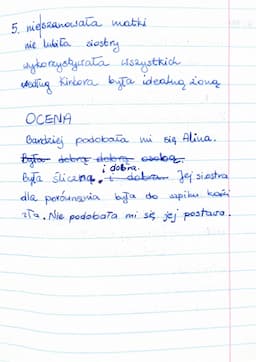 5. nieszanowała matki
nie lubiła siostry
wykorzystywała wszystkich
według Kirkora była idealną żoną
OCENA
Bardziej podobała mi się Alina.
Była dobrą dobrą osobą.
Była śliczna. i dobra. i dobra. Jej siostra
dla porównania była do szpiku kości
zła. Nie podobała mi się jej postawa.